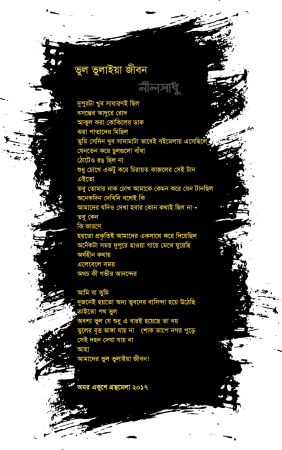 ভুল ভুলাইয়া জীবন
নীলসাধু
দুপুরটা খুব সাধারণই ছিল
বসন্তের আদুরে রোদ
আকুল করা কোকিলের ডাক
ঝরা পাতাদের মিছিল
তুমি সেদিন খুব সাদামাটা ভাবেই বইমেলায় এসেছিলে
যেনতেন করে চুলগুলো বাঁধা
ঠোটেও রঙ ছিল না
শুধু চোখে একটু করে চিরায়ত কাজলের সেই টান
এইতো
তবু তোমার নাক চোখ আমাকে কেমন করে যেন টানছিল
অনেকদিন দেখিনি বলেই কি
আমাদের যদিও দেখা হবার কোন কথাই ছিল না-
তবু কেন
কি কারণে
হয়তো প্রকৃতিই আমাদের একসাথে করে দিয়েছিল
অনেকটা সময় দুপুরে হাওয়া গায়ে মেখে ঘুরেছি
অর্থহীন কথায়
এলেবেলে সময়
অথচ কী গভীর আনন্দের
আমি বা তুমি
দুজনেই হয়তো অন্য ভুবনের বাসিন্দা হয়ে উঠেছি
তাইতো পথ ভুল
অবশ্য ভুল যে শুধু এ বারই হয়েছে তা নয়
ভুলের বৃত্ত ভাঙ্গা যায় না শোক তাপে নগর পুড়ে
সেই দহন দেখা যায় না
আহা
আমাদের ভুল ভুলাইয়া জীবন!
অমর একুশে গ্রন্থমেলা ২০১৭